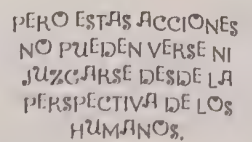 PERO ESTAS ACCIONES
NO PUEDEN VERSE NI
JUZGARSE DESDE LA
PERSPECTIVA DE LOS
HUMANOS.